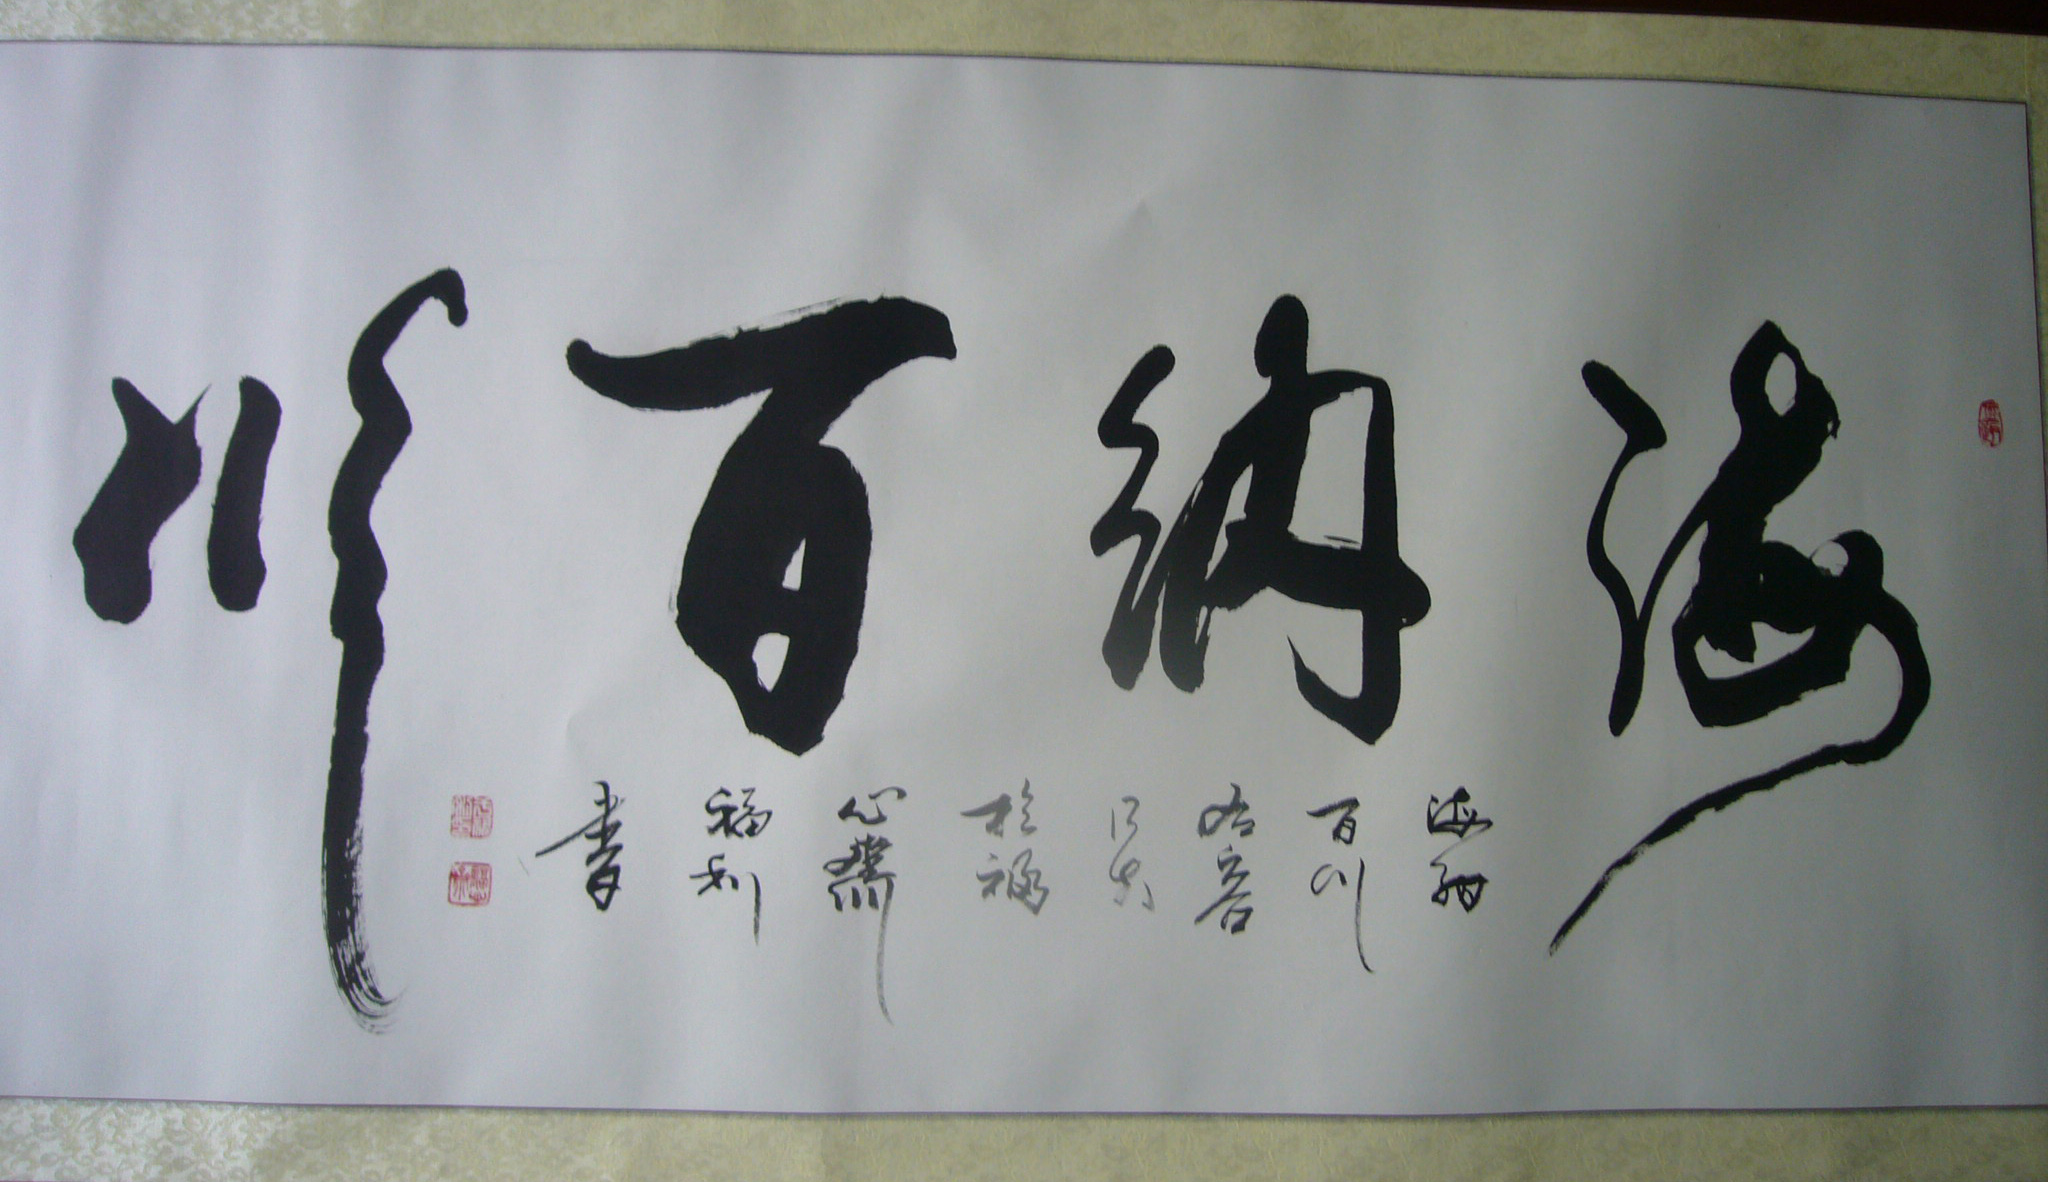 海纳百川
海纳
百川
有容
乃大
於福
心斋
福利
書